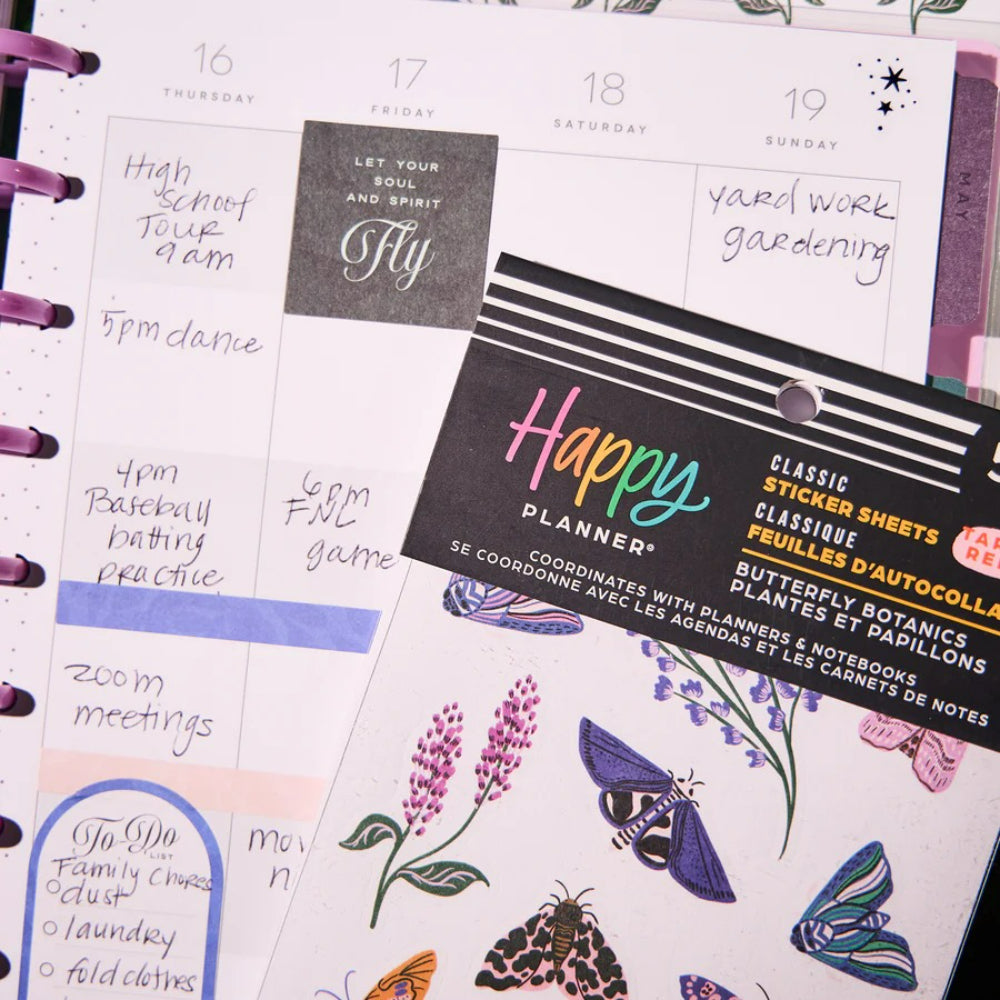 16
THURSDAY
17
FRIDAY
18
SATURDAY
19
SUNDAY
MAY
High
school
Tour
9am
5pm dance
4pm
Baseball
batting
practice
zoom
meetings
To Do
LIST
Family chores
dust
laundry
fold clothes
LET YOUR
SOUL
AND SPIRIT
Fly
6pm
FNL
game
yard work
gardening
Happy
PLANNER®
CLASSIC
STICKER SHEETS
CLASSIQUE
BUTTERFLY BOTANICS
PLANTES ET PAPILLONS
COORDINATES WITH PLANNERS & NOTEBOOKS
SE COORDONNE AVEC LES AGENDAS ET LES CARNETS DE NOTES
FEUILLES D'AUTOCOLLA